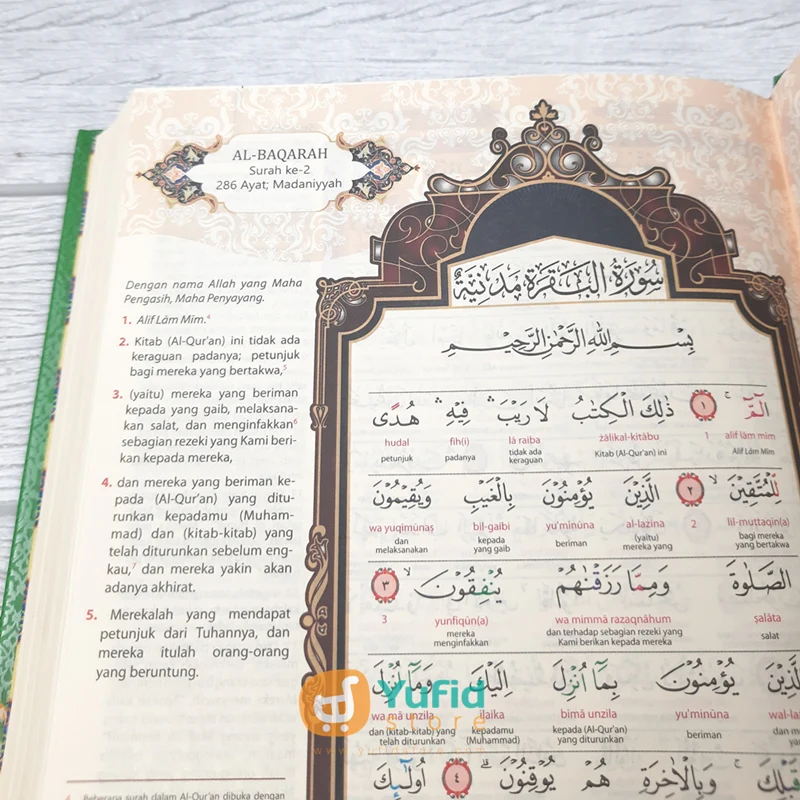 AL-BAQARAH
Surah ke-2
286 Ayat; Madaniyyah
Dengan nama Allah yang Maha
Pengasih, Maha Penyayang.
1. Alif Lām Mīm.⁴
2. Kitab (Al-Qur'an) ini tidak ada
keraguan padanya; petunjuk
bagi mereka yang bertakwa,⁵
3. (yaitu) mereka yang beriman
kepada yang gaib, melaksana-
kan salat, dan menginfakkan⁶
sebagian rezeki yang Kami beri-
kan kepada mereka,
4. dan mereka yang beriman ke-
pada (Al-Qur'an) yang ditu-
runkan kepadamu (Muham-
mad) dan (kitab-kitab) yang
telah diturunkan sebelum eng-
kau,⁷ dan mereka yakin akan
adanya akhirat.
5. Merekalah yang mendapat
petunjuk dari Tuhannya, dan
mereka itulah orang-orang
yang beruntung.
4 Beberapa surah dalam Al-Qur'an dibuka dengan
سُورَةُ الْبَقَرَةِ مَدَنِيَّةٌ
بِسْمِ اللهِ الرَّحْمٰنِ الرَّحِيْمِ
الۤمّۤ ۚ ١ ذٰلِكَ الْكِتٰبُ لَا رَيْبَ ۛ فِيْهِ ۛ هُدًى
hudal fīh(i) lā raiba żālikal-kitābu 1 alif lām mīm
petunjuk padanya tidak ada keraguan Kitab (Al-Qur'an) ini Alif Lām Mīm
لِّلْمُتَّقِيْنَ ۙ ٢ الَّذِيْنَ يُؤْمِنُوْنَ بِالْغَيْبِ وَيُقِيْمُوْنَ
wa yuqīmūnaṣ bil-gaibi yu'minūna al-lażīna 2 lil-muttaqīn(a)
dan melaksanakan kepada yang gaib beriman (yaitu) mereka yang bagi mereka yang bertakwa
الصَّلٰوةَ وَمِمَّا رَزَقْنٰهُمْ يُنْفِقُوْنَ ۙ ٣
3 yunfiqūn(a) wa mimmā razaqnāhum ṣalāta
mereka menginfakkan dan terhadap sebagian rezeki yang Kami berikan kepada mereka salat
يُؤْمِنُوْنَ بِمَآ اُنْزِلَ اِلَيْكَ وَمَآ اُنْزِلَ
wa mā unzila ilaika bimā unzila yu'minūna
dan (kitab-kitab) yang telah diturunkan kepadamu (Muhammad) kepada (Al-Qur'an) yang diturunkan beriman
قَبْلِكَ وَبِالْاٰخِرَةِ هُمْ يُوْقِنُوْنَ ۗ ٤ اُولٰۤىِٕكَ
Yufid
store
www.yufidstore.com